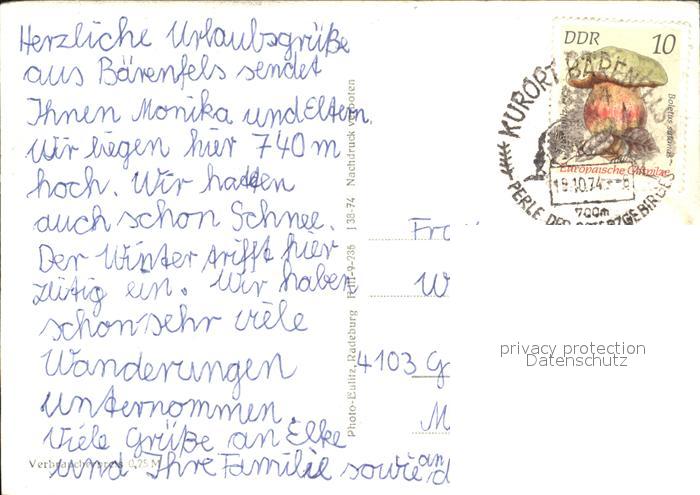 Herzliche Urlaubsgrüße
aus Bärenfels sendet
Ihnen Monika und Eltern.
Wir liegen hier 740 m
hoch. Wir hatten
auch schon Schnee.
Der Winter trifft hier
zeitig ein. Wir haben
schon sehr viele
Wanderungen
unternommen.
Viele Grüße an Elke
und Ihre Familie sowie an
Verbraucherpreis 0,25 M
Photo-Eulitz, Radeburg III-9-236 J 38-74 Nachdruck verboten
DDR 10
Boletus satanas
Europäische Giftpilze
KURORT BÄRENFELS
19.10.74
700m
PERLE DES OSTERZGEBIRGES
Fr
W
4103 G
M
privacy protection
Datenschutz